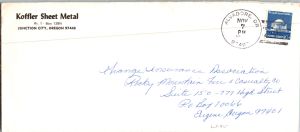 Koffler Sheet Metal
Rt. 1 - Box
JUNCTION CITY, OREGON 97448
NOV
7
PM
Insurance Association
Rocky Mountain Fire & Casualty Co
Suite 150 - 777 High Street
PO Box 10066
Eugene, Oregon 97401